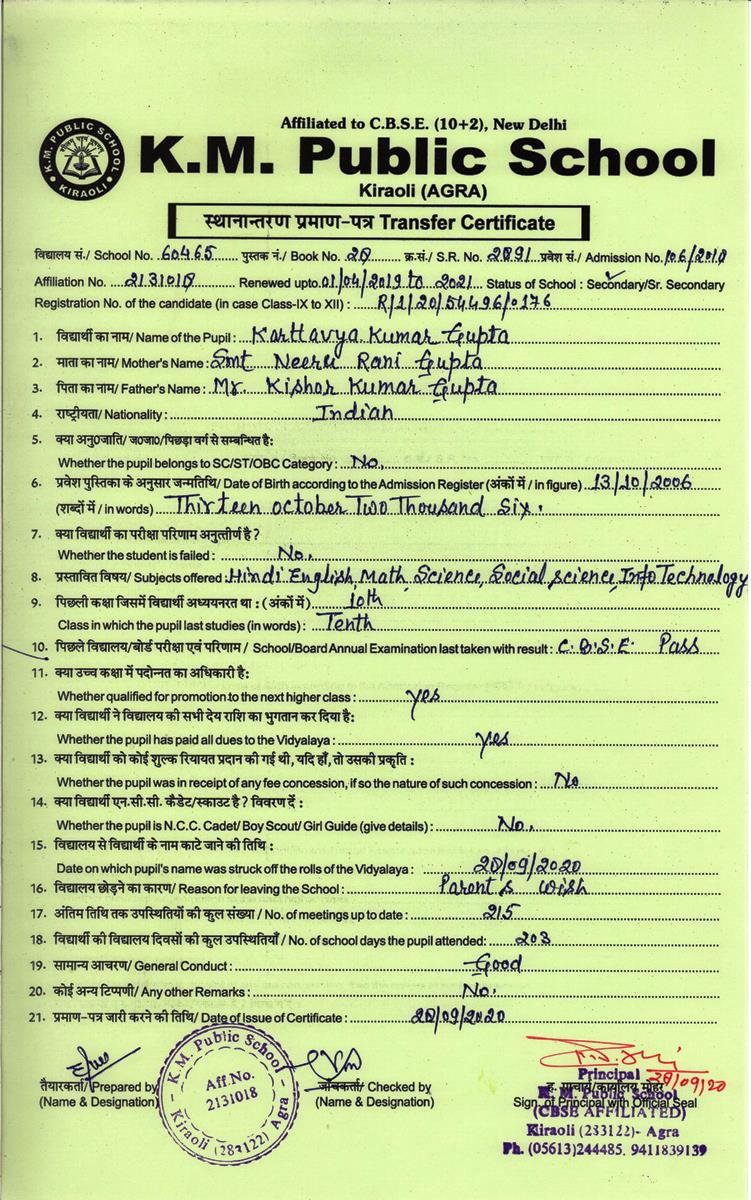 K.M. PUBLIC SCHOOL
KIRAOLI
Affiliated to C.B.S.E. (10+2), New Delhi
K.M. Public School
Kiraoli (AGRA)
स्थानान्तरण प्रमाण-पत्र Transfer Certificate
विद्यालय सं./ School No. 60465 पुस्तक नं./ Book No. क्र.सं./ S.R. No. प्रवेश सं./ Admission No.
Affiliation No. 2131018 Renewed upto. 01/04/2019 to 2021 Status of School : Secondary/Sr. Secondary
Registration No. of the candidate (in case Class-IX to XII) : R/1/20/54496/0176
1. विद्यार्थी का नाम/ Name of the Pupil : Karttavya Kumar Gupta
2. माता का नाम/ Mother's Name : Smt Neeru Rani Gupta
3. पिता का नाम/ Father's Name : Mr. Kishor Kumar Gupta
4. राष्ट्रीयता/ Nationality : Indian
5. क्या अनु0जाति/ ज0जा0/पिछड़ा वर्ग से सम्बन्धित है:
Whether the pupil belongs to SC/ST/OBC Category : No.
6. प्रवेश पुस्तिका के अनुसार जन्मतिथि/ Date of Birth according to the Admission Register (अंकों में / in figure) 13/10/2006
(शब्दों में / in words) Thirteen october Two Thousand Six.
7. क्या विद्यार्थी का परीक्षा परिणाम अनुत्तीर्ण है ?
Whether the student is failed : No.
8. प्रस्तावित विषय/ Subjects offered : Hindi English, Math, Science, Social science, Info Technology
9. पिछली कक्षा जिसमें विद्यार्थी अध्ययनरत था : (अंकों में) 10th
Class in which the pupil last studies (in words) : Tenth
10. पिछले विद्यालय/बोर्ड परीक्षा एवं परिणाम / School/Board Annual Examination last taken with result : C.B.S.E. Pass
11. क्या उच्च कक्षा में पदोन्नत का अधिकारी है:
Whether qualified for promotion to the next higher class : yes
12. क्या विद्यार्थी ने विद्यालय की सभी देय राशि का भुगतान कर दिया है:
Whether the pupil has paid all dues to the Vidyalaya : yes
13. क्या विद्यार्थी को कोई शुल्क रियायत प्रदान की गई थी, यदि हाँ, तो उसकी प्रकृति :
Whether the pupil was in receipt of any fee concession, if so the nature of such concession : No
14. क्या विद्यार्थी एन.सी.सी. कैडेट/स्काउट है ? विवरण दें :
Whether the pupil is N.C.C. Cadet/ Boy Scout/ Girl Guide (give details) : No.
15. विद्यालय से विद्यार्थी के नाम काटे जाने की तिथि :
Date on which pupil's name was struck off the rolls of the Vidyalaya : 28/09/2020
16. विद्यालय छोड़ने का कारण/ Reason for leaving the School : Parent's wish
17. अंतिम तिथि तक उपस्थितियों की कुल संख्या / No. of meetings up to date : 215
18. विद्यार्थी की विद्यालय दिवसों की कुल उपस्थितियाँ / No. of school days the pupil attended: 203
19. सामान्य आचरण/ General Conduct : Good
20. कोई अन्य टिप्पणी/ Any other Remarks : No.
21. प्रमाण-पत्र जारी करने की तिथि/ Date of Issue of Certificate : 28/09/2020
K.M. Public School
Aff.No.
2131018
Kiraoli (283122) Agra
तैयारकर्ता/ Prepared by
(Name & Designation)
जाँचकर्ता/ Checked by
(Name & Designation)
Principal 28/09/20
ह. प्राचार्य/कार्यालय मोहर
K. M. Public School
Sign. of Principal with Official Seal
(CBSE AFFILIATED)
Kiraoli (233122)- Agra
Ph. (05613)244485, 9411839139